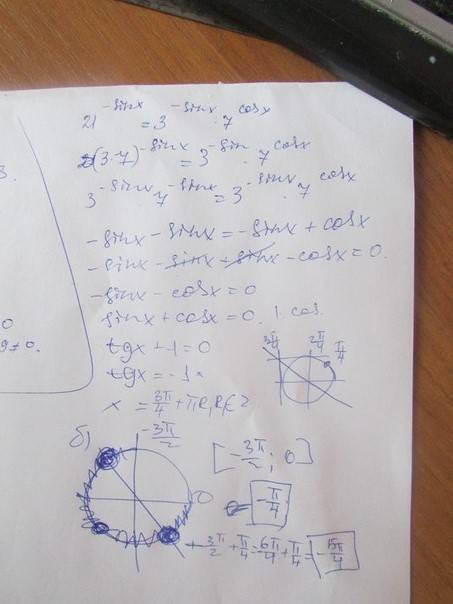 21^(-sinx) = 3^(-sinx) · 7^(cosx)
(3·7)^(-sinx) = 3^(-sin) · 7^(cosx)
3^(-sinx) 7^(-sinx) = 3^(-sinx) · 7^(cosx)
-sinx - sinx = -sinx + cosx
-sinx - sinx + sinx - cosx = 0.
-sinx - cosx = 0
sinx + cosx = 0. | : cos.
tgx + 1 = 0
tgx = -1.
x = 3π/4 + πk, k ∈ Z
3π/4 2π/4 π/4
б) -3π/2
0
[-3π/2; 0]
-π/4
-3π/2 + π/4 = -6π/4 + π/4 = -5π/4
3.
0
≠ 0.